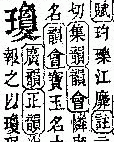 賦玓瓅江靡註
切集韻韻會憐
名韻會寶玉名
瓊
廣韻正韻
報之以瓊